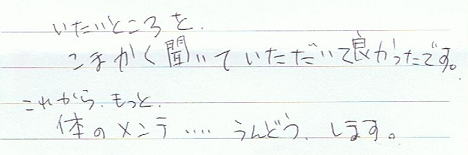 いたいところを、
こまかく聞いていただいて良かったです。
これから、もっと、
体のメンテ‥‥ うんどう、します。